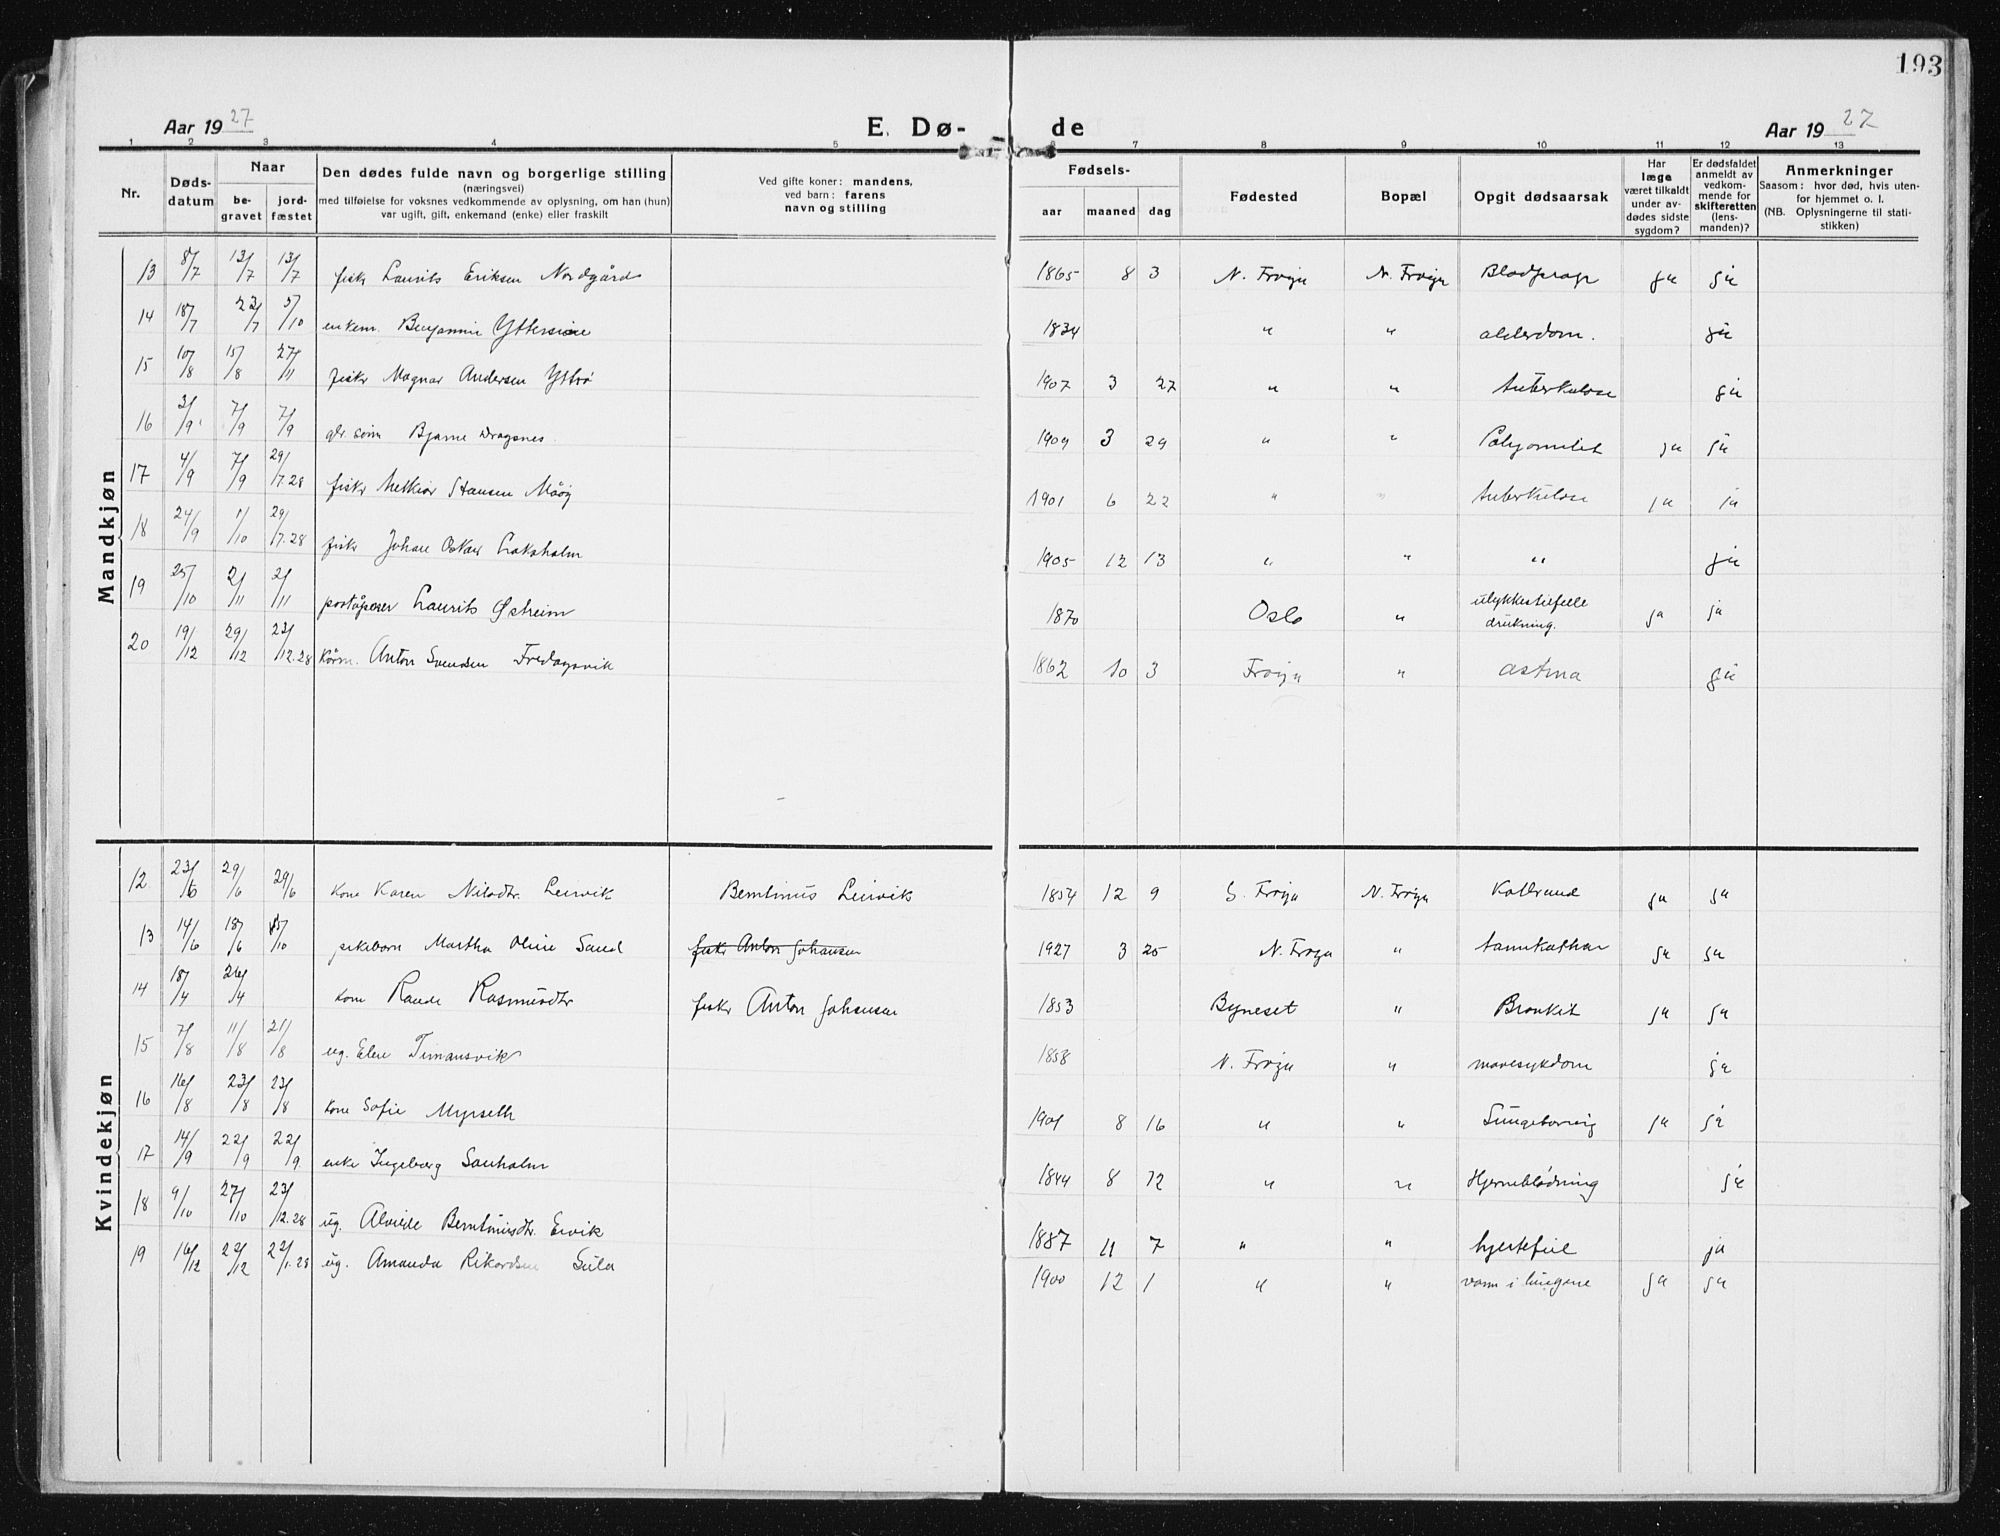 193
Aar 1927 E. Dø- de Aar 1927
1 2 3 4 5 6 7 8 9 10 11 12 13
Nr. Døds-datum Naar be-gravet jord-fæstet Den dødes fulde navn og borgerlige stilling (næringsvei) med tilføielse for voksnes vedkommende av oplysning, om han (hun) var ugift, gift, enkemand (enke) eller fraskilt Ved gifte koner: mandens, ved barn: farens navn og stilling Fødsels- aar maaned dag Fødested Bopæl Opgit dødsaarsak Har læge været tilkaldt under av-dødes sidste sygdom? Er dødsfaldet anmeldt av vedkom-mende for skifteretten (lens-manden)? Anmerkninger Saasom: hvor død, hvis uten-for hjemmet o. l. (NB. Oplysningerne til stati-stikken)
Mandkjøn
13 8/7 13/7 13/7 fiskr Laurits Eriksen Nordgård 1865 8 3 N. Frøya N. Frøya ja ja
14 18/7 23/7 5/10 enkem. Benjamin 1834 " " alderdom. ja
15 10/8 15/8 27/11 fiskr Magnar Andersen 1907 3 27 " " tuberkulose ja
16 3/9 7/9 7/9 Bjarne Dragsnes 1909 3 29 " " ja ja
17 4/9 7/9 29/7.28 fiskr Melkior Hansen 1901 6 22 " " tuberkulose ja ja
18 24/9 1/10 29/7.28 fiskr Johan Oskar 1905 12 13 " " " ja
19 25/10 2/11 2/11 Laurits Østheim 1870 Oslo " ulykkestilfelle drukning. ja ja
20 19/12 29/12 23/12.28 Anton Svendsen Fredagsvik 1862 10 3 Frøya " astma ja
Kvindekjøn
12 23/6 29/6 29/6 kone Karen Nilsdtr. Leirvik Berntinus Leirvik 1854 12 9 S. Frøya N. Frøya Koldbrand ja ja
13 14/6 18/6 /10 pikebarn Martha Oline Sand fiskr Anton Johansen 1927 3 25 N. Frøya " ja ja
14 18/4 26/4 kone Rasmusdtr fiskr Anton Johansen 1853 Byneset " Bronkit ja ja
15 7/8 11/8 21/8 ug. Elen Timansvik 1858 N. Frøya " mavesykdom ja
16 16/8 23/8 23/8 kone Sofie Myrseth 1901 8 16 " " ja ja
17 14/9 22/9 22/9 enke Ingeborg 1844 8 12 " " Hjerneblødning ja
18 9/10 27/10 23/12.28 ug. Alvide Berntinusdtr. Ervik 1887 11 7 " " hjertefeil ja
19 16/12 22/12 22/1.28 ug. Amanda Rikardsen Sula 1900 12 1 " " vann i lungene ja ja